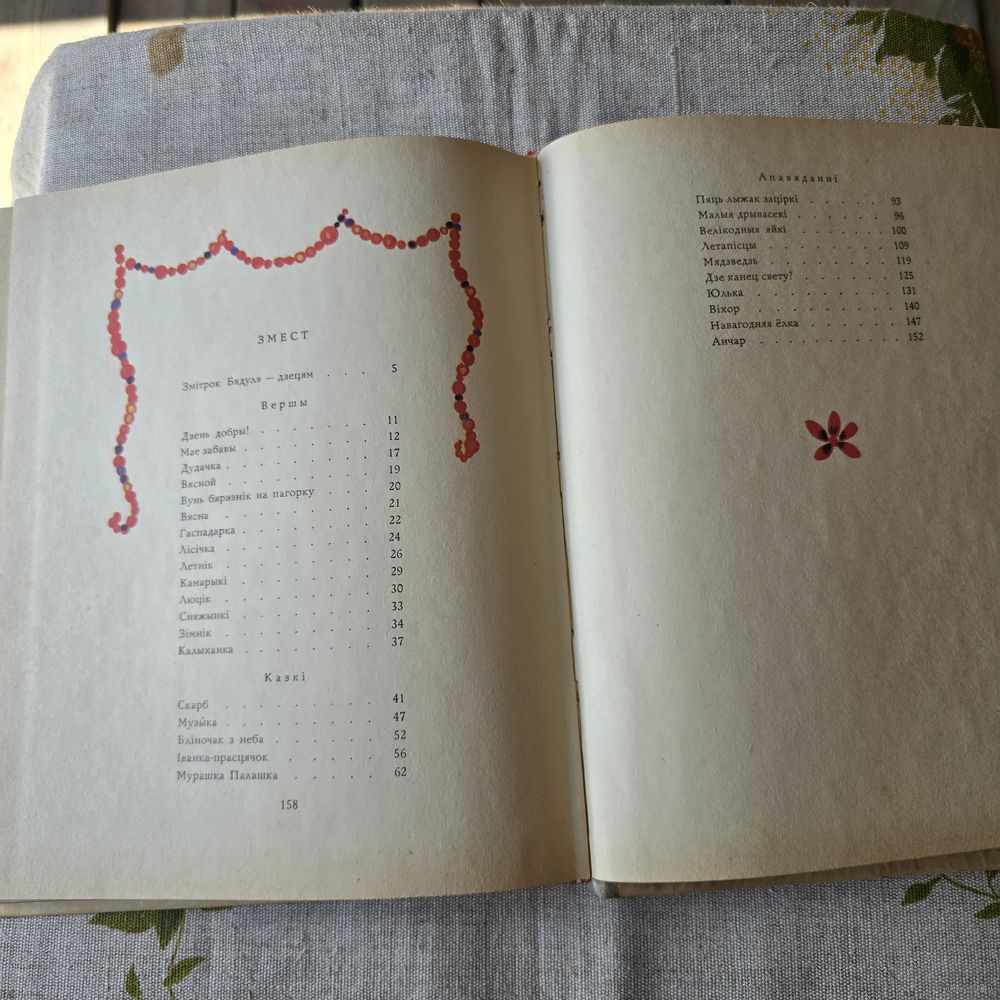 ЗМЕСТ
Змітрок Бядуля — дзецям . . . 5
Вершы
Дзень добры! . . . . . . 11
Мае забавы . . . . . . 12
Дудачка . . . . . . . 17
Вясной . . . . . . . 19
Вунь бярэзнік на пагорку . . . 20
Вясна . . . . . . . 21
Гаспадарка . . . . . . 22
Лісічка . . . . . . . 24
Летнік . . . . . . . 26
Камарыкі . . . . . . 29
Люцік . . . . . . . 30
Сняжынкі . . . . . . 33
Зімнік . . . . . . . 34
Калыханка . . . . . . 37
Казкі
Скарб . . . . . . . 41
Музы́ка . . . . . . . 47
Бліночак з неба . . . . . 52
Іванка-прасцячок . . . . . 56
Мурашка Палашка . . . . . 62
158
Апавяданні
Пяць лыжак заціркі . . . . . 93
Малыя дрывасекі . . . . . 96
Велікодныя яйкі . . . . . 100
Летапісцы . . . . . . . 109
Мядзведзь . . . . . . . 119
Дзе канец свету? . . . . . 125
Юлька . . . . . . . . 131
Віхор . . . . . . . . 140
Навагодняя ёлка . . . . . 147
Анчар . . . . . . . . 152